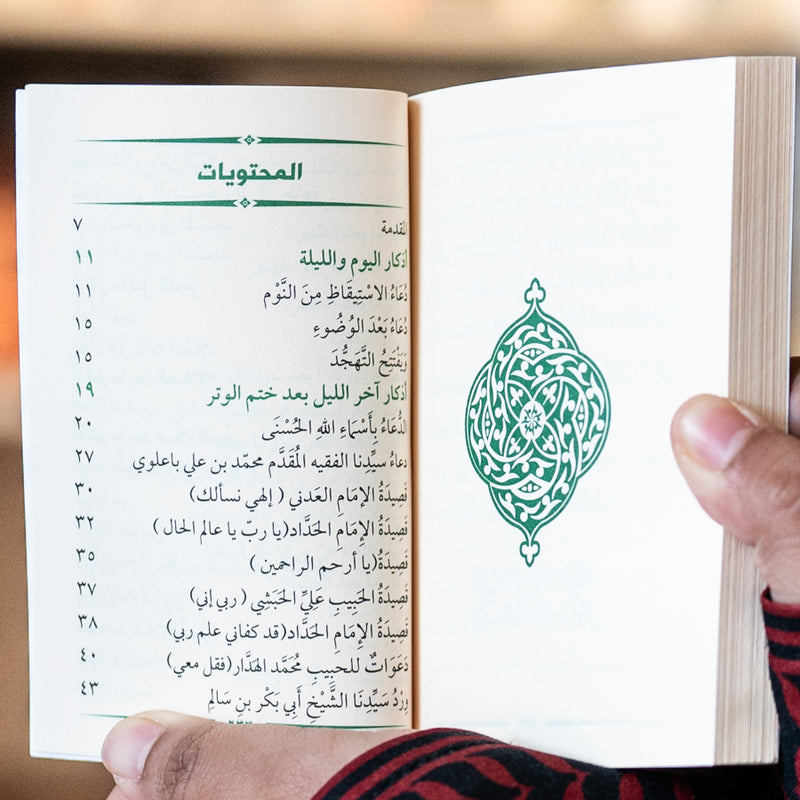 المحتويات
المقدمة ٧
أذكار اليوم والليلة ١١
دُعَاءُ الاسْتِيقَاظِ مِنَ النَّوْم ١١
دُعَاءُ بَعْدَ الوُضُوءِ ١٥
وَيَفْتَتِحُ التَّهَجُّدَ ١٥
أذكار آخر الليل بعد ختم الوتر ١٩
الدُّعَاءُ بِأَسْمَاءِ اللهِ الحُسْنَى ٢٠
دعاءُ سيِّدِنا الفقيه المُقَدَّم محمّد بن علي باعلوي ٢٧
قَصِيدَةُ الإِمَامِ العَدني ( إلهي نسألك) ٣٠
قَصِيدَةُ الإِمَامِ الحَدَّاد(يا ربّ يا عالم الحال ) ٣٢
قَصِيدَةُ(يا أرحم الراحمين ) ٣٥
قَصِيدَةُ الحَبِيبِ عَلِيِّ الحَبَشِي ( ربي إني) ٣٧
قَصِيدَةُ الإِمَامِ الحَدَّاد(قد كفاني علم ربي) ٣٨
دَعَوَاتٌ للحبيبِ مُحَمَّد الهَدَّار(فقل معي) ٤٠
وِرْدُ سَيِّدِنَا الشَّيْخِ أَبِي بَكْر بنِ سَالِمِ ٤٣